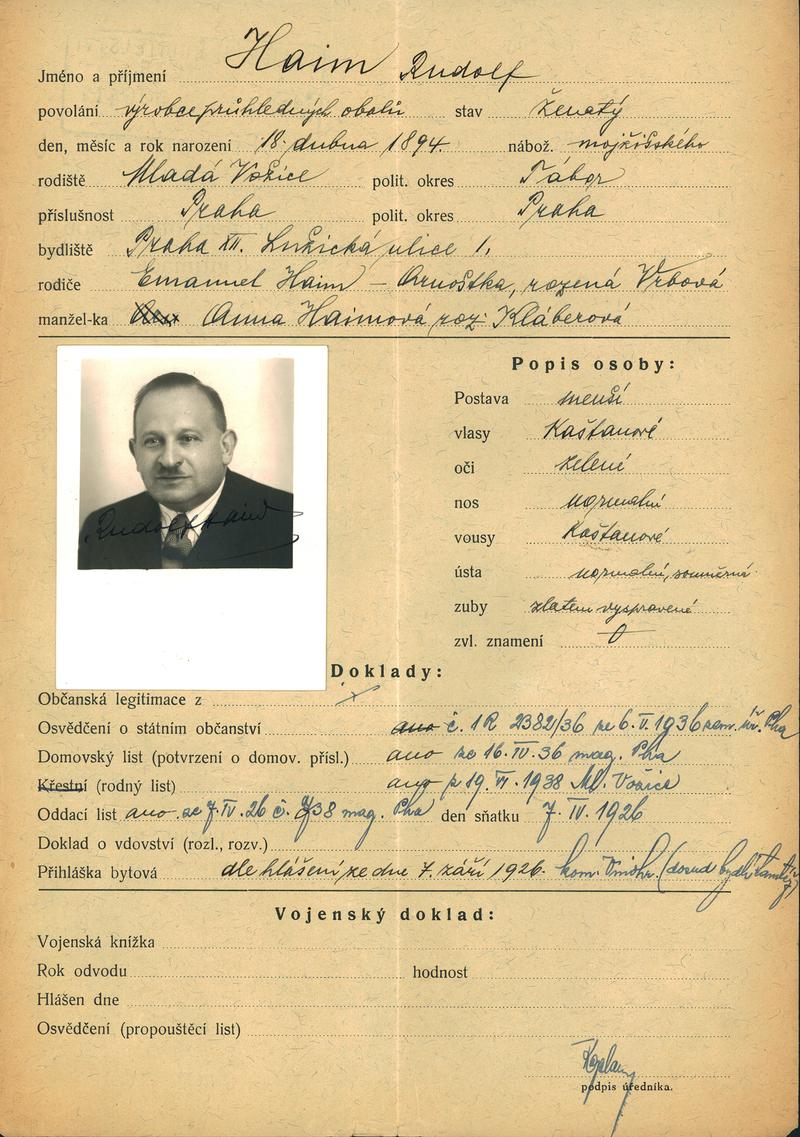 Jméno a příjmení Haim Rudolf
povolání výrobce průhledných obalů stav ženatý
den, měsíc a rok narození 18. dubna 1894. nábož. mojžíšského
rodiště Mladá Vožice polit. okres Tábor
příslušnost Praha polit. okres Praha
bydliště Praha XII. Lužická ulice 1.
rodiče Emanuel Haim – Arnoštka, rozená Vrbová
manžel-ka Anna Haimová roz. Kláberová
Popis osoby:
Postava menší
vlasy Kaštanové
oči zelené
nos normalní
vousy Kaštanové
ústa normalní, souměrná
zuby zlatem vyspravené
zvl. znamení 0
Rudolf Haim
Doklady:
Občanská legitimace z
Osvědčení o státním občanství ano č. 1R 2382/36 ze 6. V. 1936 zem. úř. Pha
Domovský list (potvrzení o domov. přísl.) ano ze 16. IV. 36 mag. Pha
Křestní (rodný list) ano z 19. VI. 1938 Ml. Vožice
Oddací list ano. ze 7. IV. 26 č. 38 mag. Pha den sňatku 7. IV. 1926
Doklad o vdovství (rozl., rozv.)
Přihláška bytová dle hlášení ze dne 7. září 1926. kom. (dosud bydlí tamtéž)
Vojenský doklad:
Vojenská knížka
Rok odvodu hodnost
Hlášen dne
Osvědčení (propouštěcí list)
podpis úředníka.